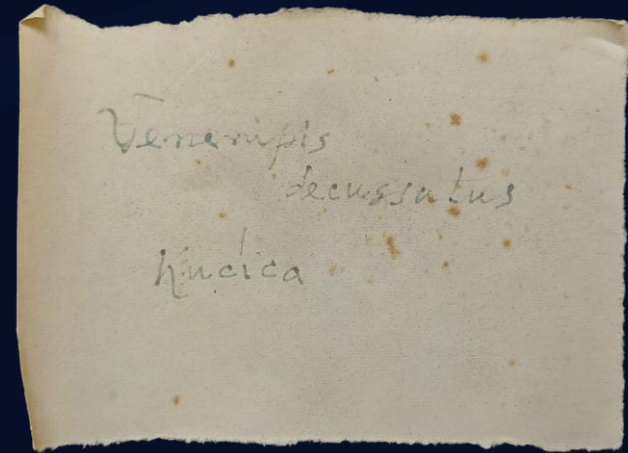 Venerupis
decussatus
Kućica